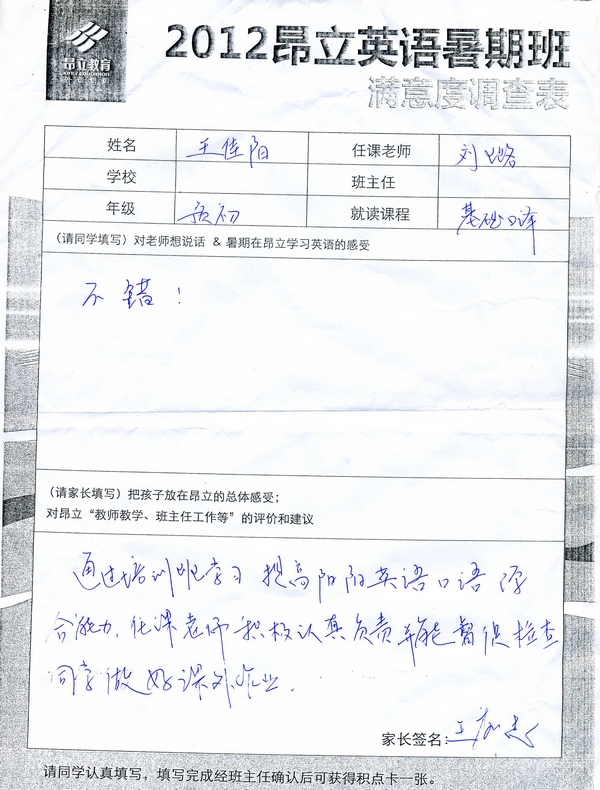 昂立教育
2012昂立英语暑期班
满意度调查表
姓名 王佳阳 任课老师 刘
学校 班主任
年级 预初 就读课程 基础口译
(请同学填写)对老师想说话 & 暑期在昂立学习英语的感受
不错!
(请家长填写)把孩子放在昂立的总体感受;
对昂立“教师教学、班主任工作等”的评价和建议
通过培训班学习 提高阳阳英语口语综
合能力,任课老师积极认真负责并能督促检查
同学做好课外作业.
家长签名: 王
请同学认真填写,填写完成经班主任确认后可获得积点卡一张。